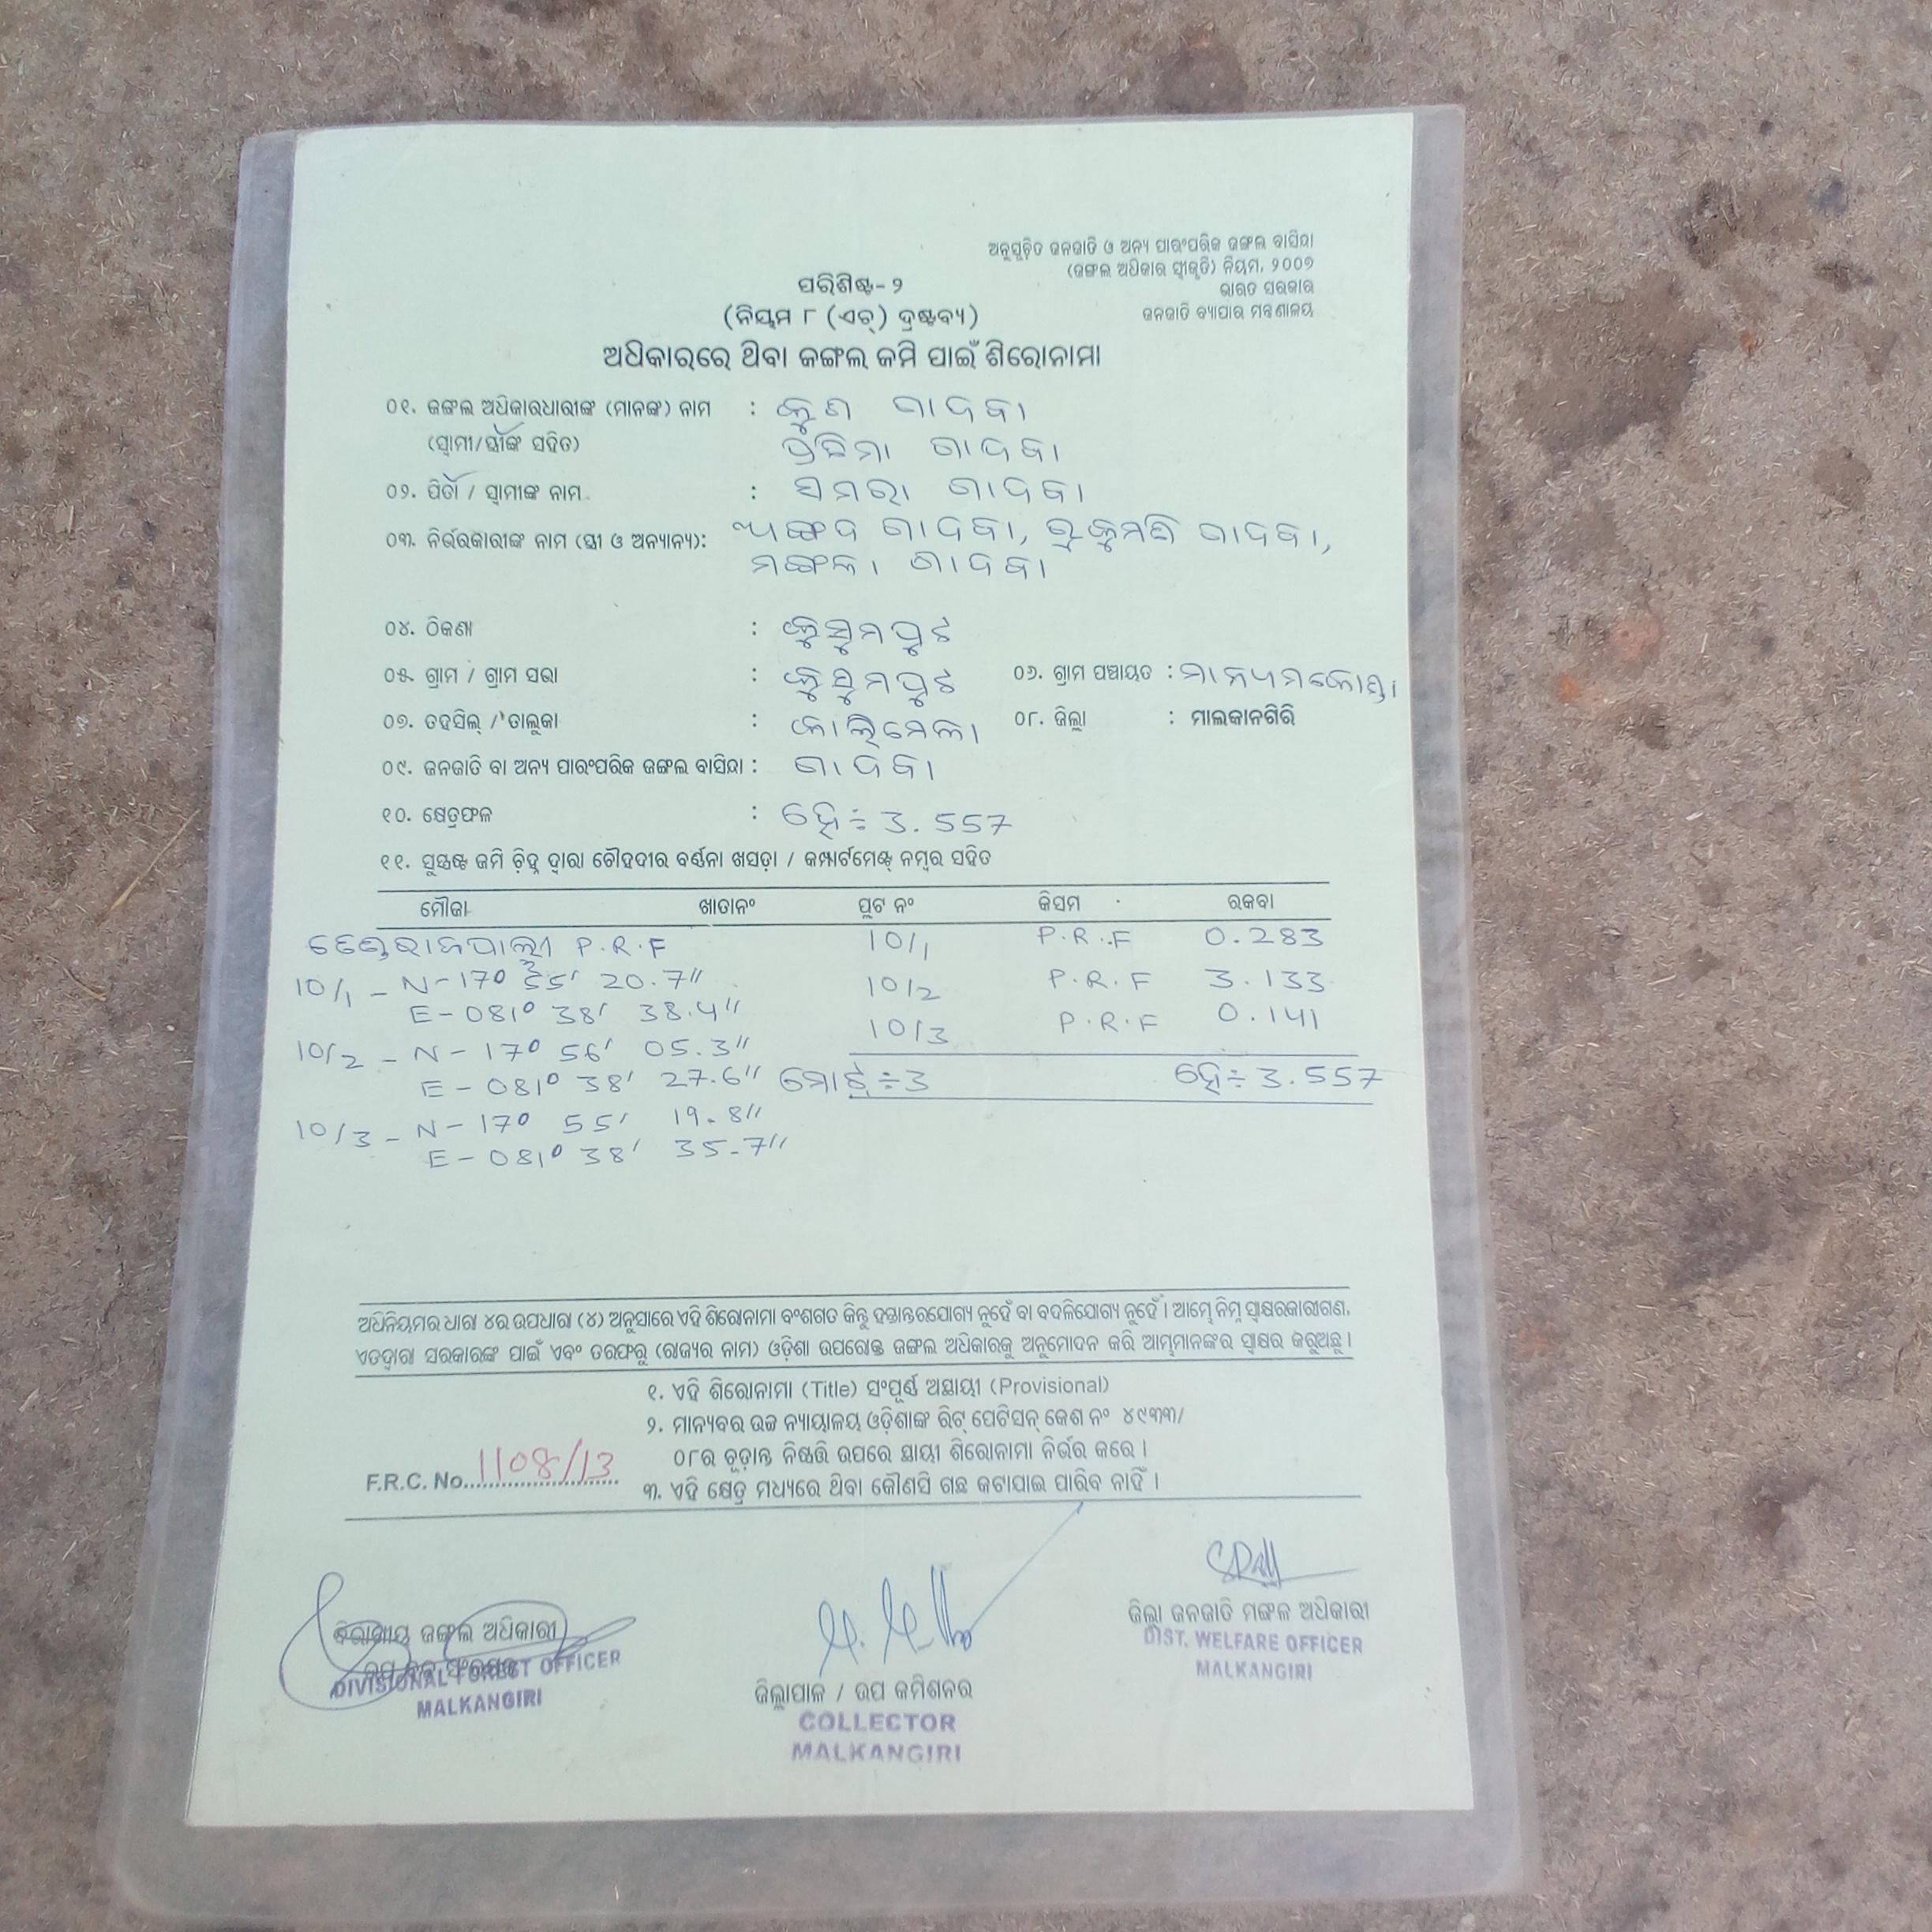 ଅନୁସୂଚିତ ଜନଜାତି ଓ ଅନ୍ୟ ପାରଂପରିକ ଜଙ୍ଗଲ ବାସିନ୍ଦା
(ଜଙ୍ଗଲ ଅଧିକାର ସ୍ୱୀକୃତି) ନିୟମ, ୨୦୦୭
ଭାରତ ସରକାର
ଜନଜାତି ବ୍ୟାପାର ମନ୍ତ୍ରଣାଳୟ
ପରିଶିଷ୍ଟ-୨
(ନିୟମ ୮ (ଏଚ୍) ଦ୍ରଷ୍ଟବ୍ୟ)
ଅଧିକାରରେ ଥିବା ଜଙ୍ଗଲ ଜମି ପାଇଁ ଶିରୋନାମା
୦୧. ଜଙ୍ଗଲ ଅଧିକାରଧାରୀଙ୍କ (ମାନଙ୍କ) ନାମ : ଗାଦବା
(ସ୍ୱାମୀ/ସ୍ତ୍ରୀଙ୍କ ସହିତ) ଗାଦବା
୦୨. ପିତା / ସ୍ୱାମୀଙ୍କ ନାମ : ସମରା ଗାଦବା
୦୩. ନିର୍ଭରକାରୀଙ୍କ ନାମ (ସ୍ତ୍ରୀ ଓ ଅନ୍ୟାନ୍ୟ): ଅଙ୍ଗଦ ଗାଦବା, ରୁକୁମଣି ଗାଦବା,
ମଙ୍ଗଳା ଗାଦବା
୦୪. ଠିକଣା : କୁସୁମପୁଟ
୦୫. ଗ୍ରାମ / ଗ୍ରାମ ସଭା : କୁସୁମପୁଟ ୦୬. ଗ୍ରାମ ପଞ୍ଚାୟତ : ମାନ୍ୟମକୋଣ୍ଡା
୦୭. ତହସିଲ୍ / ତାଲୁକା : କାଲିମେଳା ୦୮. ଜିଲ୍ଲା : ମାଲକାନଗିରି
୦୯. ଜନଜାତି ବା ଅନ୍ୟ ପାରଂପରିକ ଜଙ୍ଗଲ ବାସିନ୍ଦା : ଗାଦବା
୧୦. କ୍ଷେତ୍ରଫଳ : ହେ÷ 3.557
୧୧. ସୁସ୍ପଷ୍ଟ ଜମି ଚିହ୍ନ ଦ୍ୱାରା ଚୌହଦୀର ବର୍ଣ୍ଣନା ଖସଡ଼ା / କମ୍ପାର୍ଟମେଣ୍ଟ୍ ନମ୍ବର ସହିତ
ମୌଜା ଖାତାନଂ ପ୍ଲଟ ନଂ କିସମ ରକବା
P.R.F 10/1 P.R.F 0.283
10/1 - N-17° 55' 20.7" 10/2 P.R.F 3.133
E-081° 38' 38.4" 10/3 P.R.F 0.141
10/2 - N-17° 56' 05.3"
E-081° 38' 27.6" ମୋଟ÷3 ହେ÷3.557
10/3 - N-17° 55' 19.8"
E-081° 38' 35.7"
ଅଧିନିୟମର ଧାରା ୪ର ଉପଧାରା (୪) ଅନୁସାରେ ଏହି ଶିରୋନାମା ବଂଶଗତ କିନ୍ତୁ ହସ୍ତାନ୍ତରଯୋଗ୍ୟ ନୁହେଁ ବା ବଦଳିଯୋଗ୍ୟ ନୁହେଁ । ଆମ୍ଭେ ନିମ୍ନ ସ୍ୱାକ୍ଷରକାରୀଗଣ,
ଏତଦ୍ଦ୍ୱାରା ସରକାରଙ୍କ ପାଇଁ ଏବଂ ତରଫରୁ (ରାଜ୍ୟର ନାମ) ଓଡ଼ିଶା ଉପରୋକ୍ତ ଜଙ୍ଗଲ ଅଧିକାରକୁ ଅନୁମୋଦନ କରି ଆମ୍ଭମାନଙ୍କର ସ୍ୱାକ୍ଷର କରୁଅଛୁ ।
୧. ଏହି ଶିରୋନାମା (Title) ସଂପୂର୍ଣ୍ଣ ଅସ୍ଥାୟୀ (Provisional)
୨. ମାନ୍ୟବର ଉଚ୍ଚ ନ୍ୟାୟାଳୟ ଓଡ଼ିଶାଙ୍କ ରିଟ୍ ପେଟିସନ୍ କେଶ ନଂ ୪୯୩୩/
୦୮ର ଚୂଡ଼ାନ୍ତ ନିଷ୍ପତ୍ତି ଉପରେ ସ୍ଥାୟୀ ଶିରୋନାମା ନିର୍ଭର କରେ ।
F.R.C. No. 1108/13
୩. ଏହି କ୍ଷେତ୍ର ମଧ୍ୟରେ ଥିବା କୌଣସି ଗଛ କଟାଯାଇ ପାରିବ ନାହିଁ ।
ବିଭାଗୀୟ ଜଙ୍ଗଲ ଅଧିକାରୀ
DIVISIONAL FOREST OFFICER
MALKANGIRI
ଜିଲ୍ଲାପାଳ / ଉପ କମିଶନର
COLLECTOR
MALKANGIRI
ଜିଲ୍ଲା ଜନଜାତି ମଙ୍ଗଳ ଅଧିକାରୀ
DIST. WELFARE OFFICER
MALKANGIRI